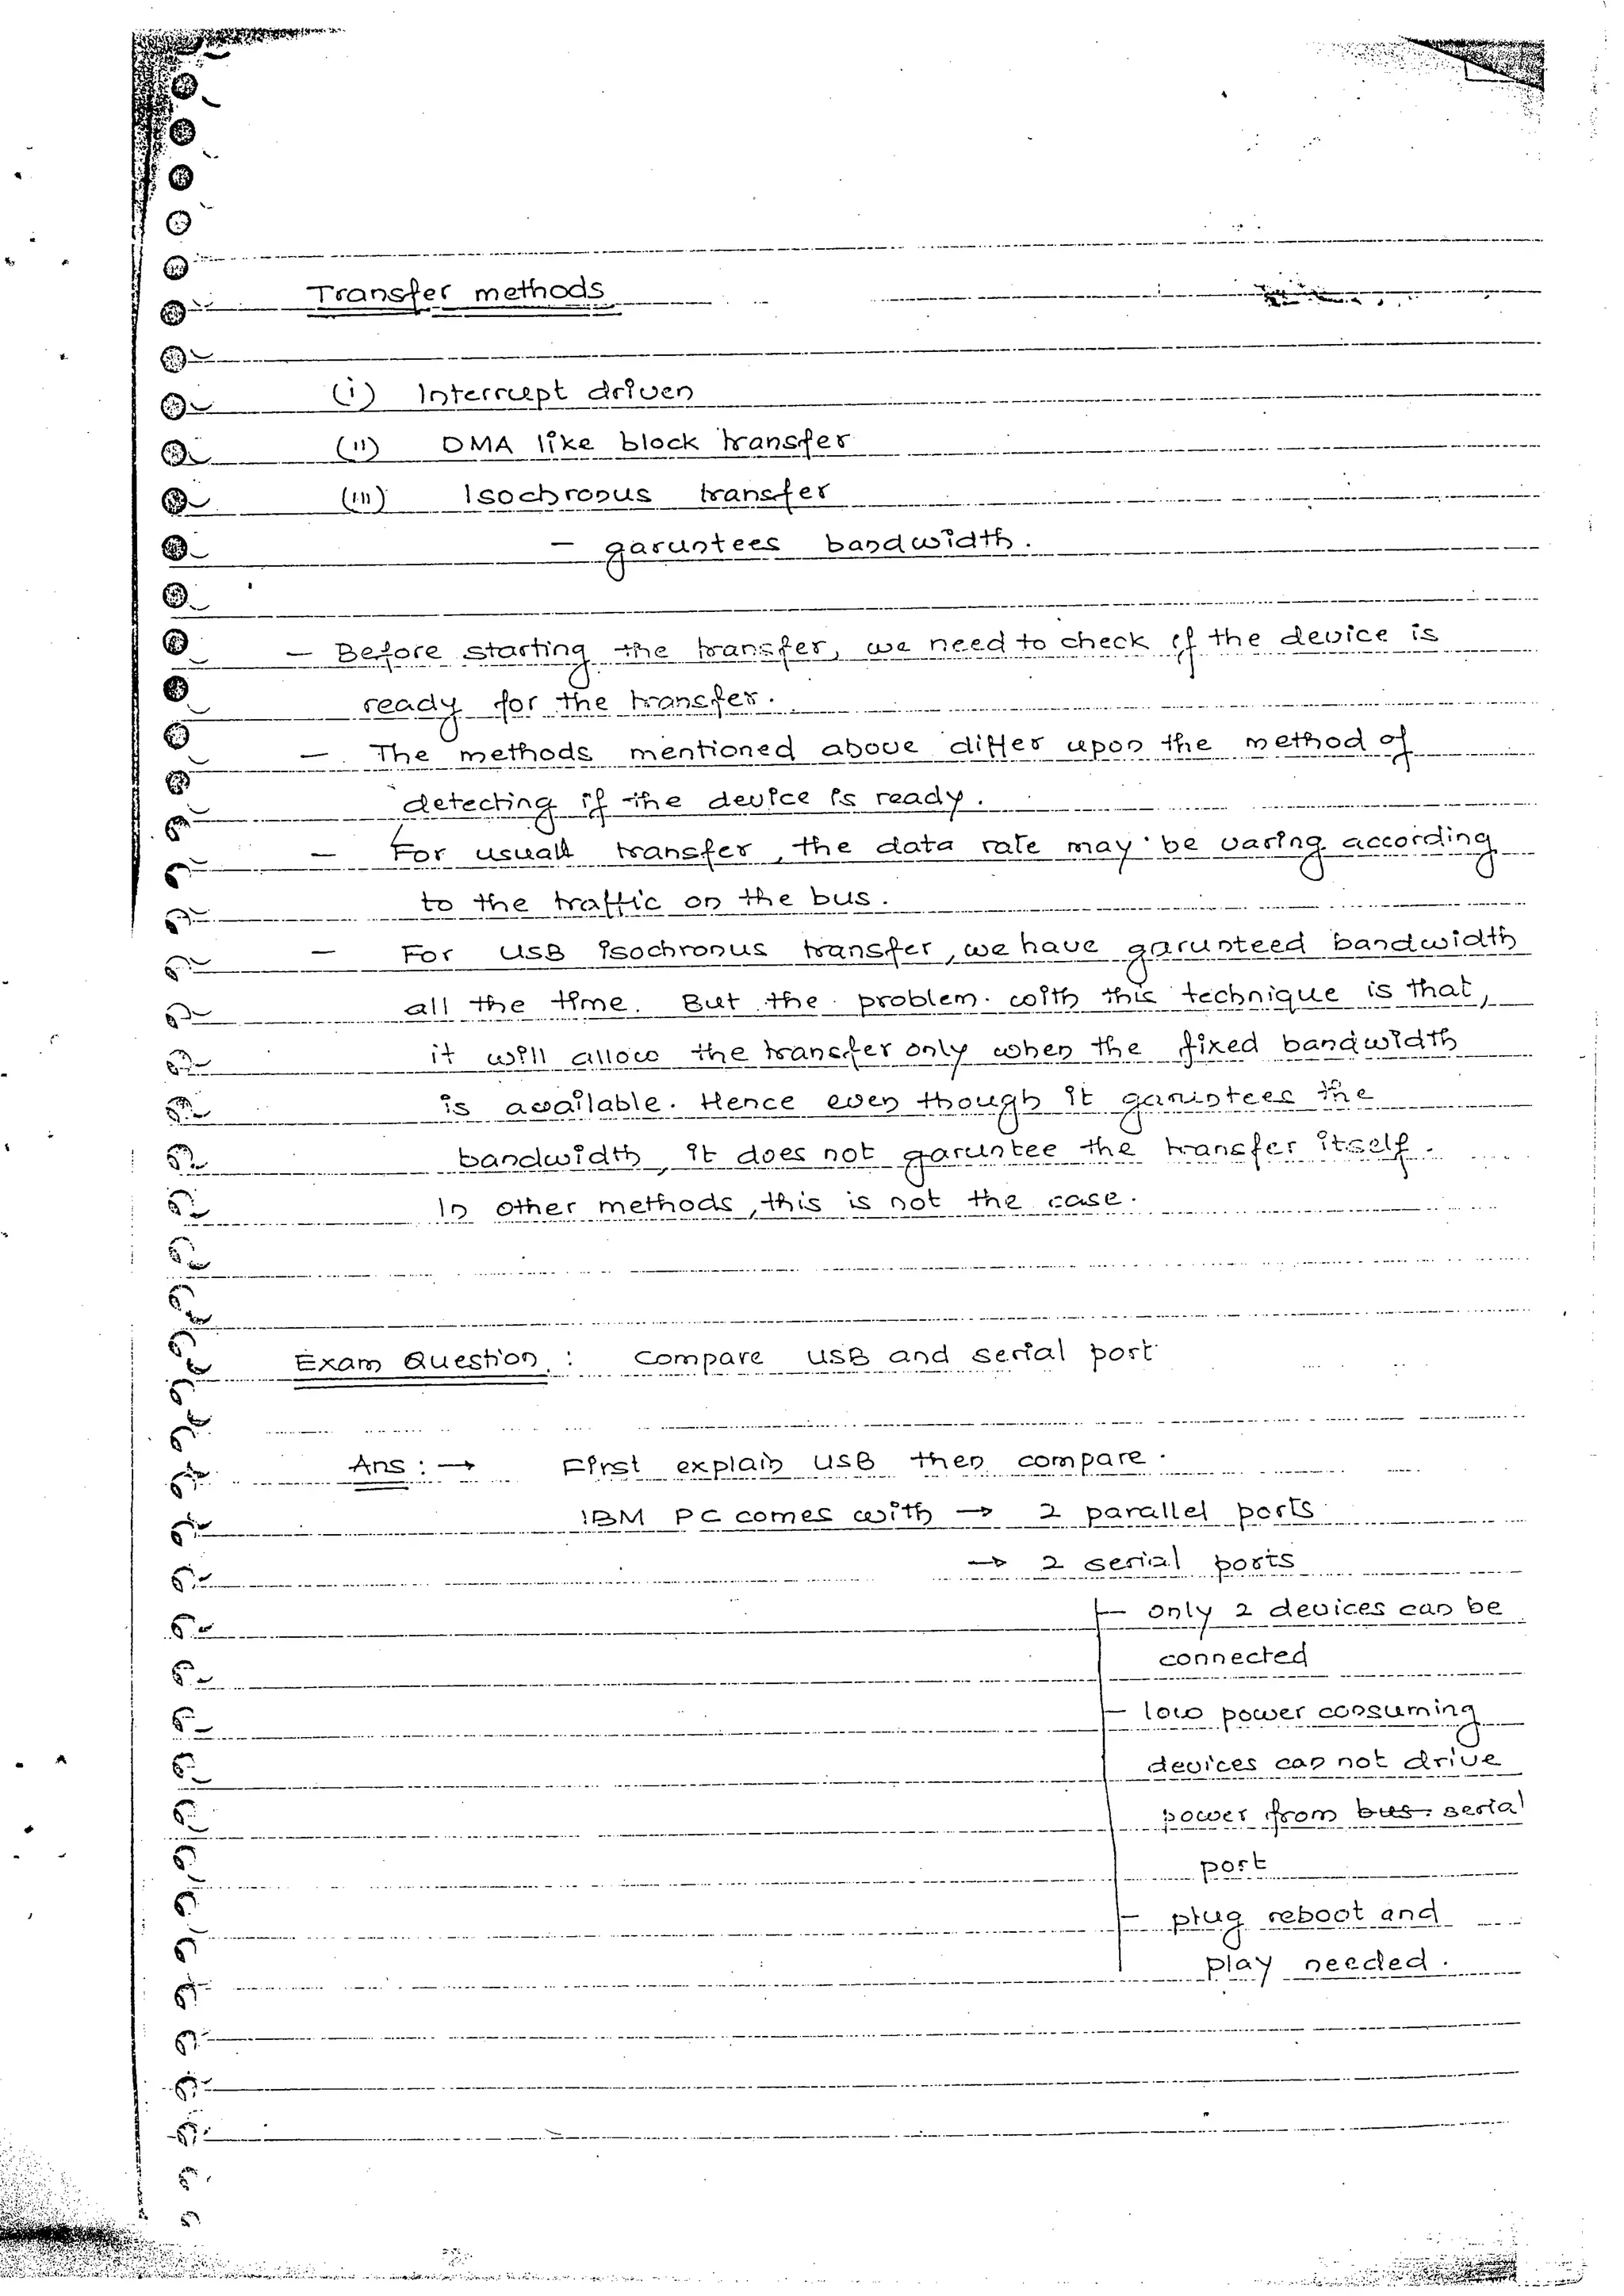 Transfer methods
(i) Interrupt driven
(ii) DMA like block transfer
(iii) Isochronus transfer
- garuntees bandwidth.
- Before starting the transfer, we need to check if the device is
ready for the transfer.
- The methods mentioned above differ upon the method of
detecting if the device is ready.
- For usuall transfer, the data rate may be varing according
to the traffic on the bus.
- For USB isochronus transfer, we have garunteed bandwidth
all the time. But the problem with this technique is that,
it will allow the transfer only when the fixed bandwidth
is available. Hence even though it garuntees the
bandwidth, it does not garuntee the transfer itself.
In other methods, this is not the case.
Exam Question : Compare USB and serial port
Ans : → First explain USB then compare.
IBM PC comes with → 2 parallel ports
→ 2 serial ports
- only 2 devices can be
connected
- low power consuming
devices can not drive
power from bus. serial
port
- plug reboot and
play needed.